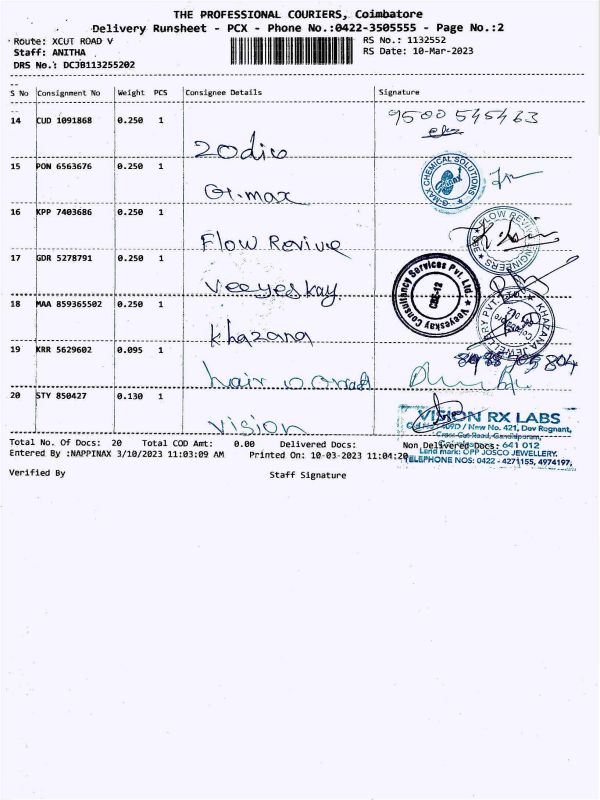 THE PROFESSIONAL COURIERS, Coimbatore
Delivery Runsheet - PCX - Phone No.:0422-3505555 - Page No.:2
Route: XCUT ROAD V
RS No.: 1132552
Staff: ANITHA
RS Date: 10-Mar-2023
DRS No.: DCJB113255202
S No Consignment No Weight PCS Consignee Details Signature
14 CUD 1091868 0.250 1
9500545463
Zodiv
15 PON 6563676 0.250 1
G-MAX CHEMICAL SOLUTIONS
G.max
16 KPP 7403686 0.250 1
FLOW REVIVE ENGINEERS
Flow Revive
17 GDR 5278791 0.250 1
Veeyeskay Consultancy Services Pvt. Ltd.
CBE-12
Veeyeskay
18 MAA 859365502 0.250 1
KHAZANA JEWELLERY PVT.
khazana
19 KRR 5629602 0.095 1
hair
20 STY 850427 0.130 1
VISION RX LABS
/ New No. 421, Dev Regnant,
Cross Cut Road, Gandhipuram,
641 012
Land mark: OPP JOSCO JEWELLERY.
TELEPHONE NOS: 0422 - 4271155, 4974197,
vision
Total No. Of Docs: 20 Total COD Amt: 0.00 Delivered Docs: Non Delivered Docs:
Entered By :NAPPINAX 3/10/2023 11:03:09 AM Printed On: 10-03-2023 11:04:20
Verified By Staff Signature